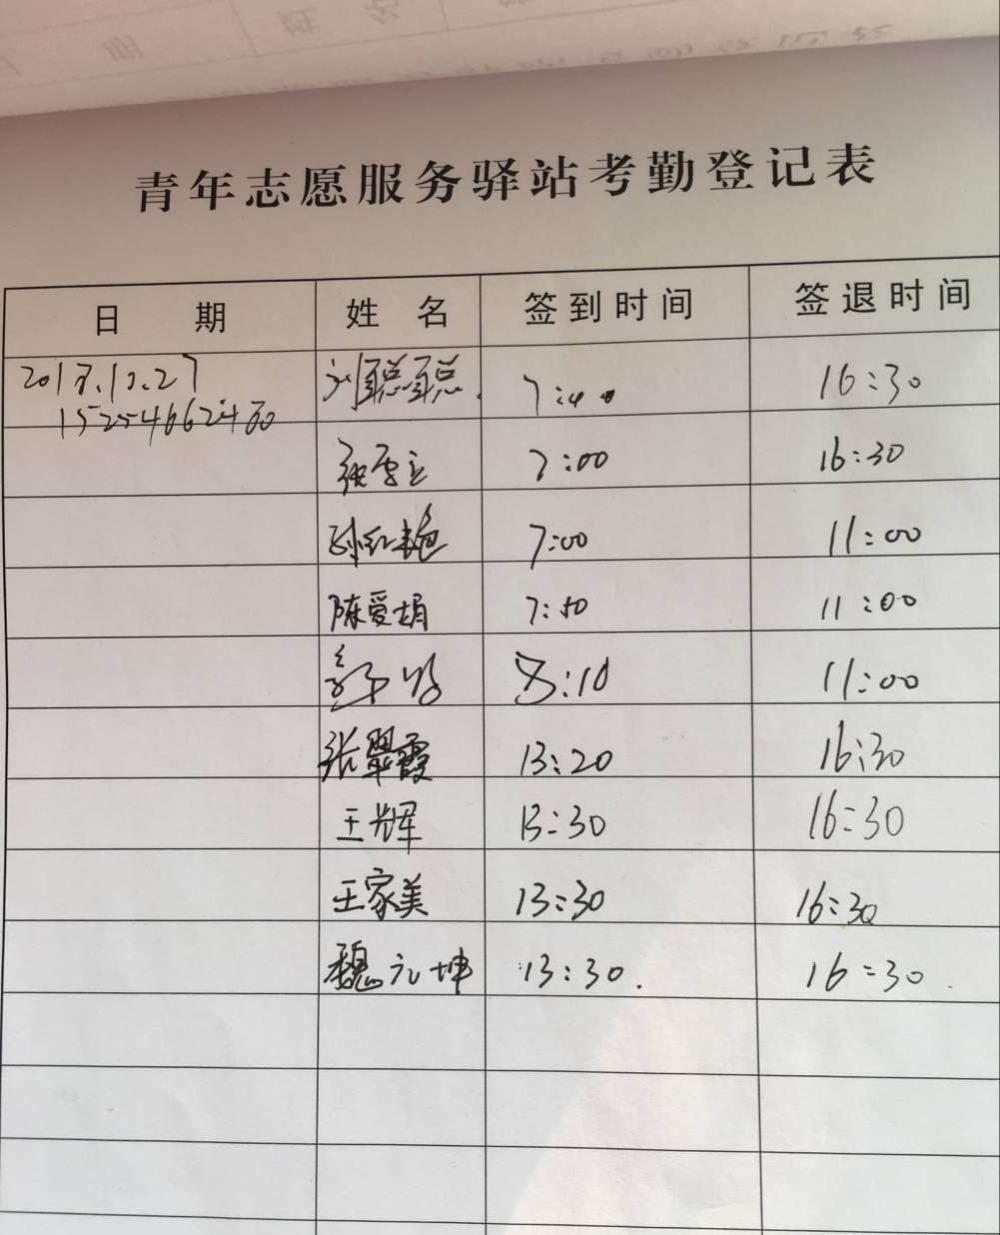 青年志愿服务驿站考勤登记表
日期 姓名 签到时间 签退时间
刘聪聪 7:40 16:30
7:00 16:30
孙红艳 7:00 11:00
陈爱娟 7:50 11:00
8:10 11:00
张翠霞 13:20 16:30
王辉 13:30 16:30
王家美 13:30 16:30
魏元坤 13:30 16:30